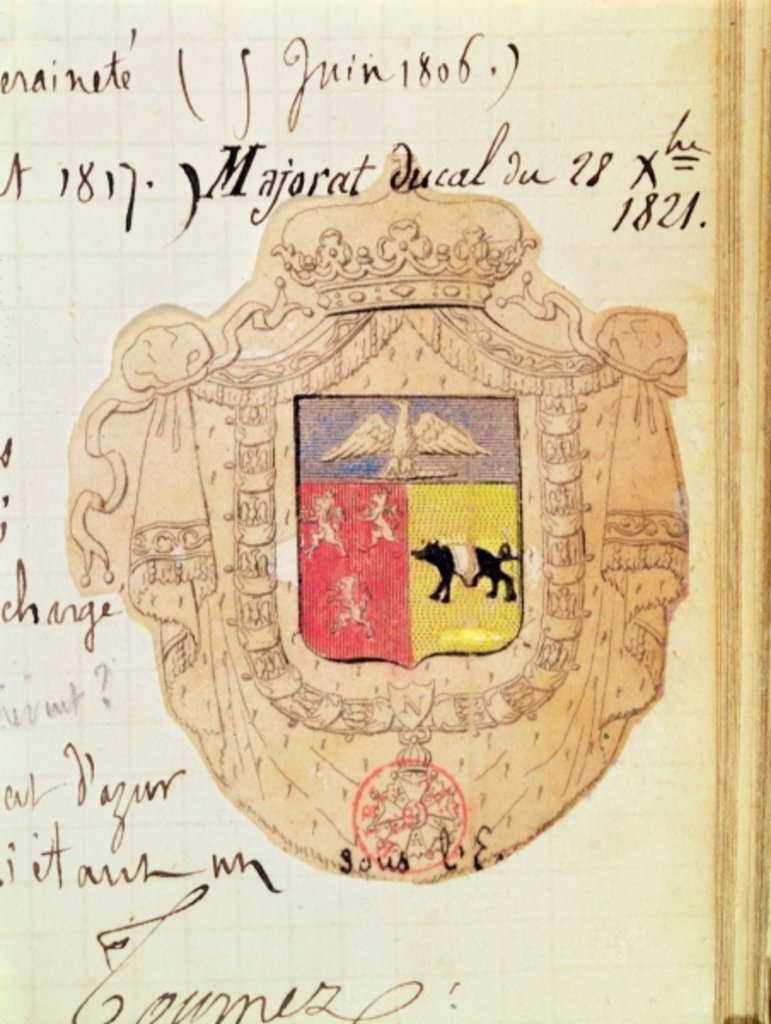 eraineté ( 5 Juin 1806.)
t 1817.) Majorat ducal du 28 Xbre
1821.
charge
N
at d'azur
s'étant un
sous l'E.
Tournez :